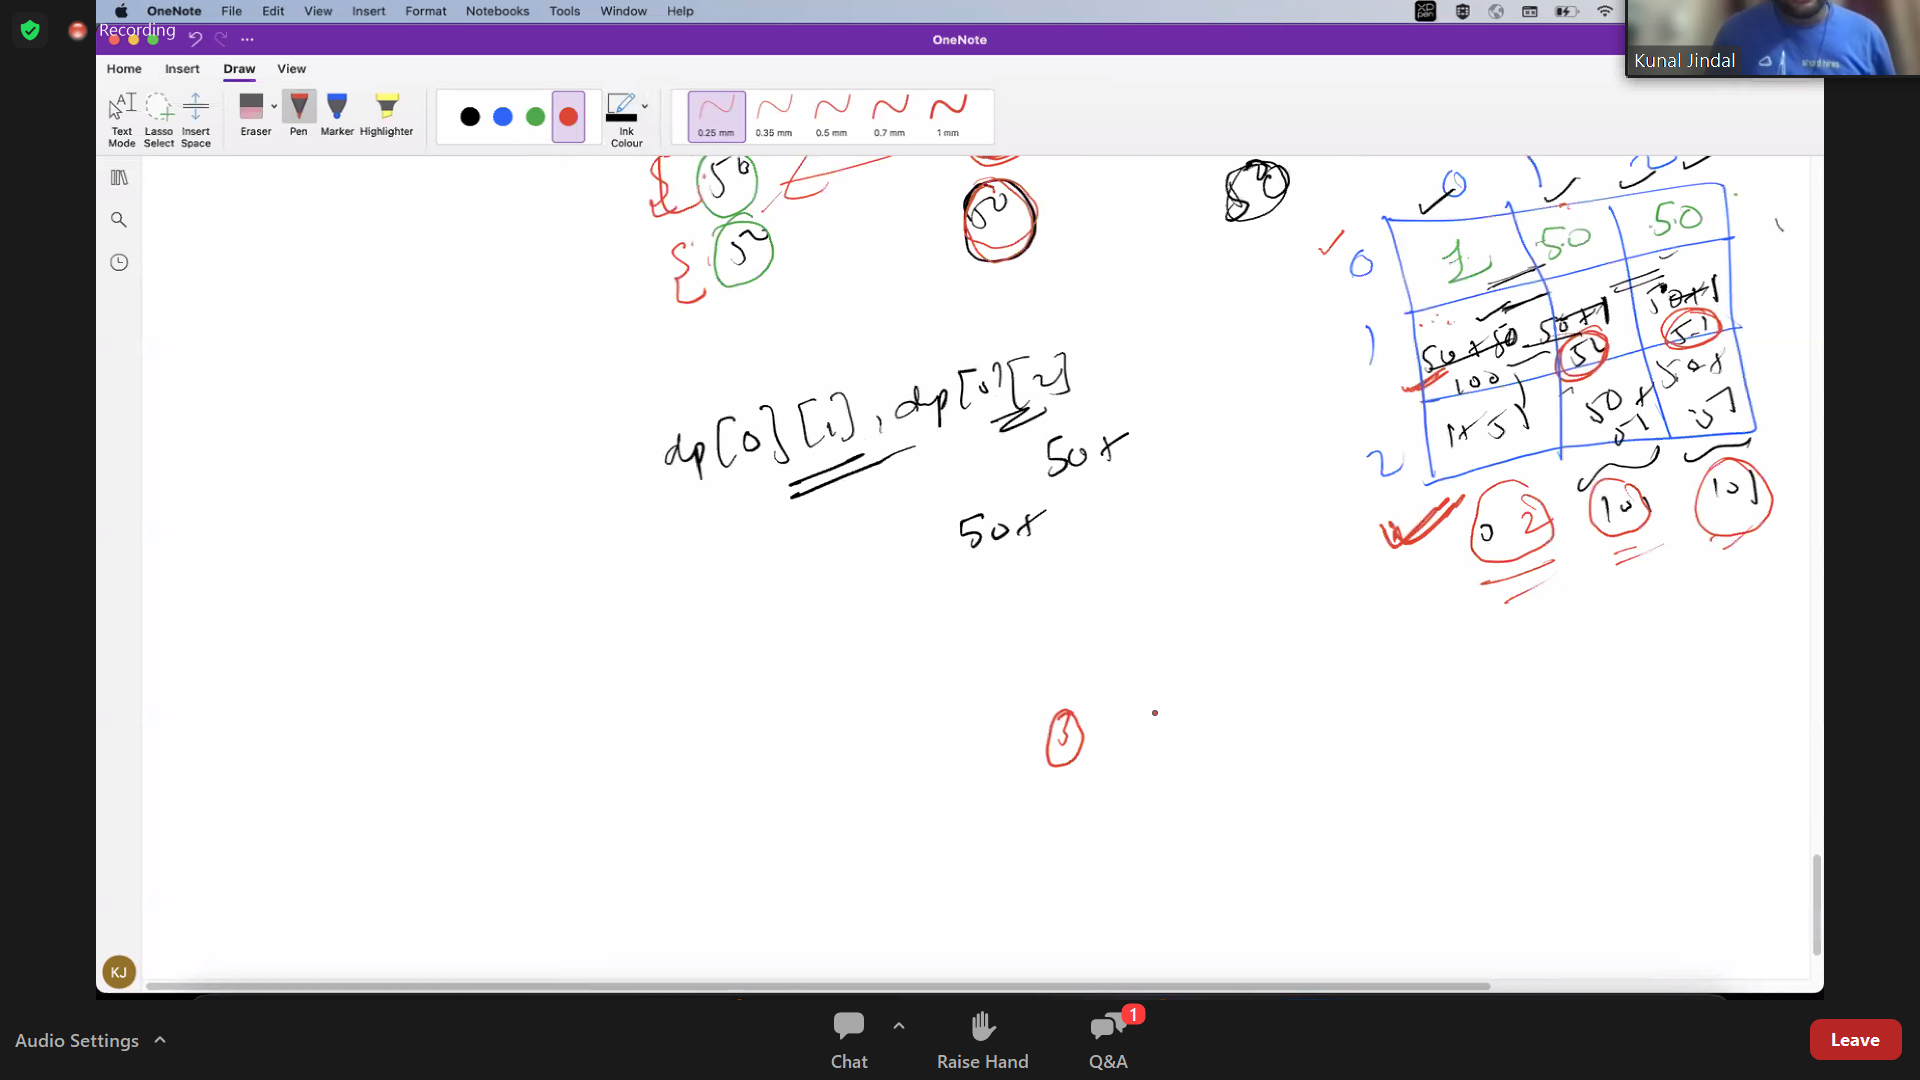 OneNote File Edit View Insert Format Notebooks Tools Window Help
Recording
OneNote
Kunal Jindal
Home Insert Draw View
Text Mode
Lasso Select
Insert Space
Eraser
Pen
Marker
Highlighter
Ink Colour
0.25 mm
0.35 mm
0.5 mm
0.7 mm
1 mm
50
50
50
0 1 2
0 1 50 50
1 50+50 50+1 50+1
100 51
2 1+51 50+51 50+
dp[0][1], dp[0][2]
50+
50+
0 2 101 101
3
KJ
Audio Settings
Chat
Raise Hand
Q&A
1
Leave